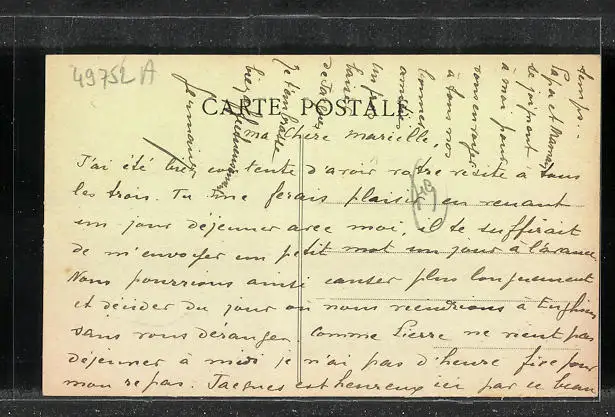 49752 A
CARTE POSTALE
ma chere marielle,
J'ai été bien contente d'avoir votre visite à tous
les trois. Tu me ferais plaisir en venant
un jour déjeuner avec moi, il te suffirait
de m'envoyer un petit mot un jour à l'avance
Nous pourrions ainsi causer plus longuement
et décider du jour où nous viendrions à
sans vous déranger. Comme Pierre ne vient pas
déjeuner à midi je n'ai pas d'heure fixe pour
mon repas. Jacques est heureux ici par ce beau
temps..
Papa et Maman
se joignent
à moi pour
vous envoyer
à tous nos
bonnes
amitiés
un gros
baiser
de Jacques
Je t'embrasse
bien affectueusement
Germaine